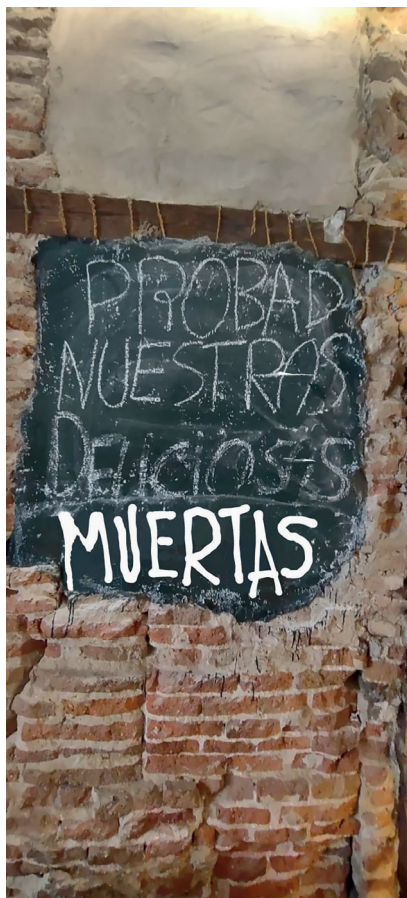 PROBAD
NUESTRAS
DELICIOSAS
MUERTAS